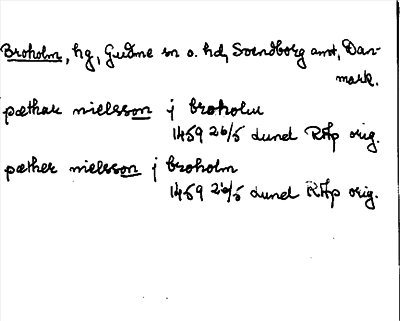 Broholm, hg, Gudme sn o. hd, Svendborg amt, Dan-
mark.
pæthar nielsson j broholm
1459 26/5 Lund RAp orig.
pæther nielsson j broholm
1459 26/5 Lund RAp orig.